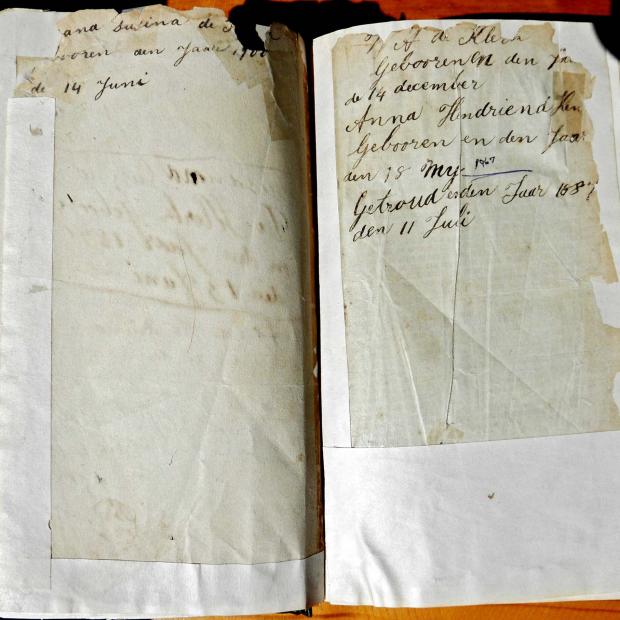 ana Susina de
booren den Jaar 1900
de 14 Juni
A de Klerk
Gebooren en den Ja
de 14 december
Anna Hendriena
Gebooren en den Jaar
den 18 My 1867
Getroud enden Jaar 1887
den 11 Juli